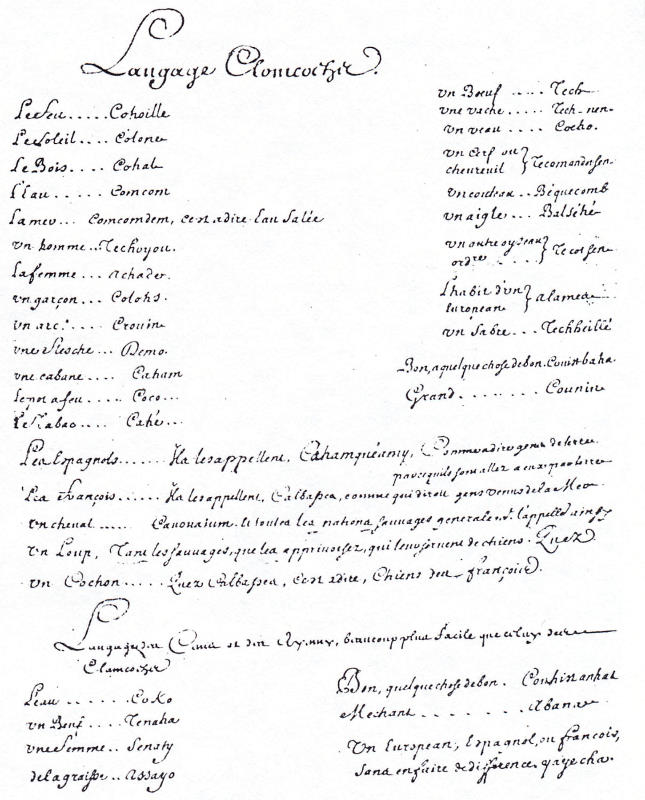 Langage Clomcoche.
Le feu ..... Cohoille
Le soleil .... Colone
Le Bois .... Cohal
L'Eau ..... Comcom
La mer ... Comcomdem, c'est a dire Eau Salée
vn homme .. Techoyou.
La femme ... achader.
vn garçon ... Colohs.
vn arc ..... Crouin
vne flesche ... Demo.
vne cabane .... Caham
le pot a feu .... Coco ...
Le Tabac .... Cahé ...
vn Bœuf ..... Tech
vne vache ..... Tech-nen
vn veau .... Cocho.
vn Cerf ou
chevreuil } Tecomandsen
vn cordeau .. Bequecomb
vn aigle ... Balsehé
vn autre oyseau
ordre ..... } Tecotsen
L'habit d'vn
European } alamea
vn Sabre ... Techbeille
Bon, a quelque chose de bon. Couin baha
Grand ........ Counin
Les Espagnols ....... Ils les appellent, Cahamquéamy, Comme a dire gens de terre
parce qu'ils sont allez a eux par terre
Les François ...... Ils les appellent, Calbassa, comme qui diroit gens venus de la Mer
vn cheval ...... Canouaium. et toutes les nations sauvages generalemt. l'appelle ainsy
vn Loup, Tant les sauvages, que les apprivoisez, qui leur servent de chiens. Quez
vn Cochon ..... Quez Calbassa, c'est a dire, Chiens des françois.
Langage des Cenis et des Aynays, beaucoup plus facile que celuy des
Clamcoche
L'eau ....... CoKo
vn Bœuf .... Tenaha
vne femme .. Senaty
de la graisse .. assayo
Bon, quelque chose de bon. Couhinanhat
Mechant ....... abanae
Vn European, Espagnol, ou françois,
sans en faire de difference. qayecha.